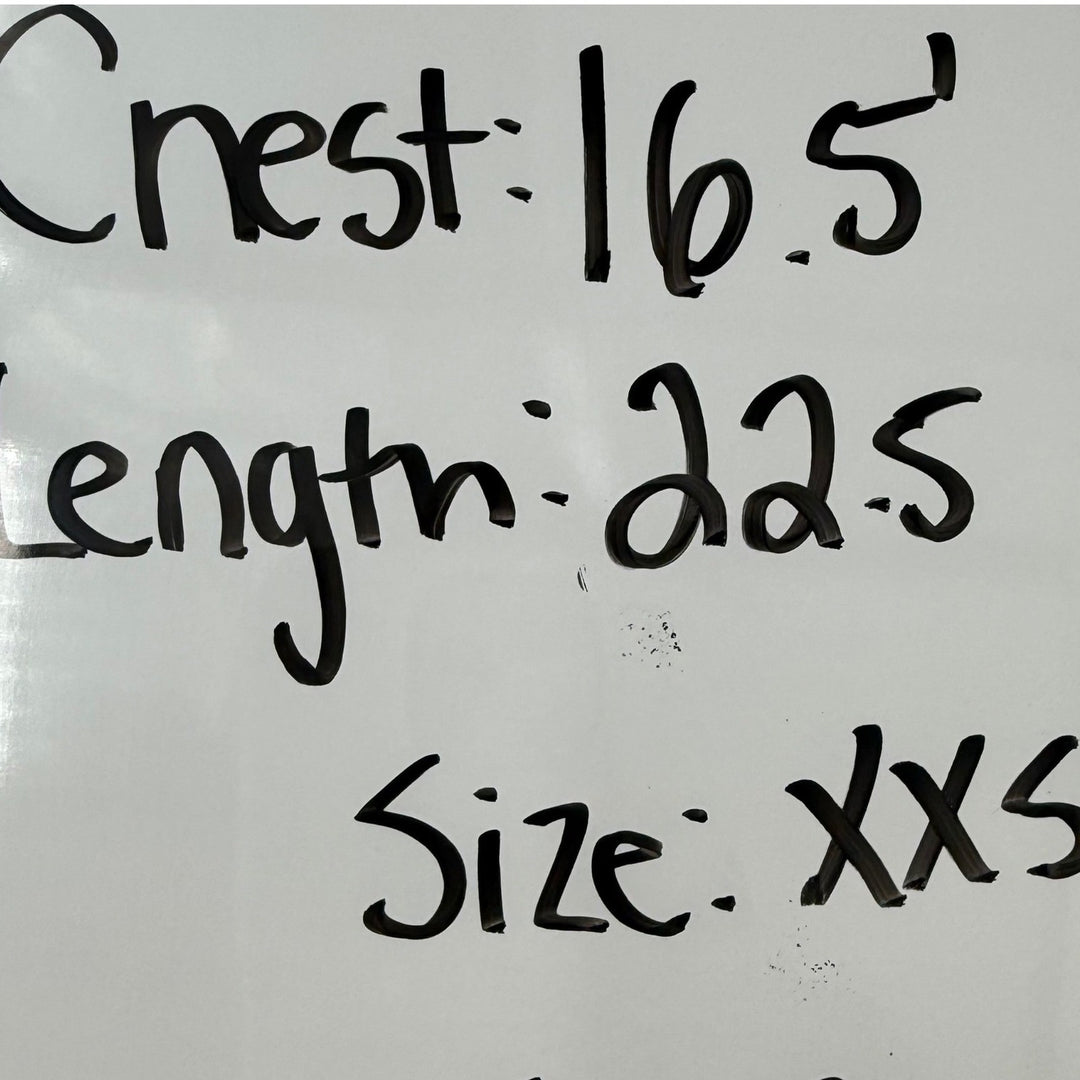 Chest: 16.5
Length: 22.5
Size: XXS